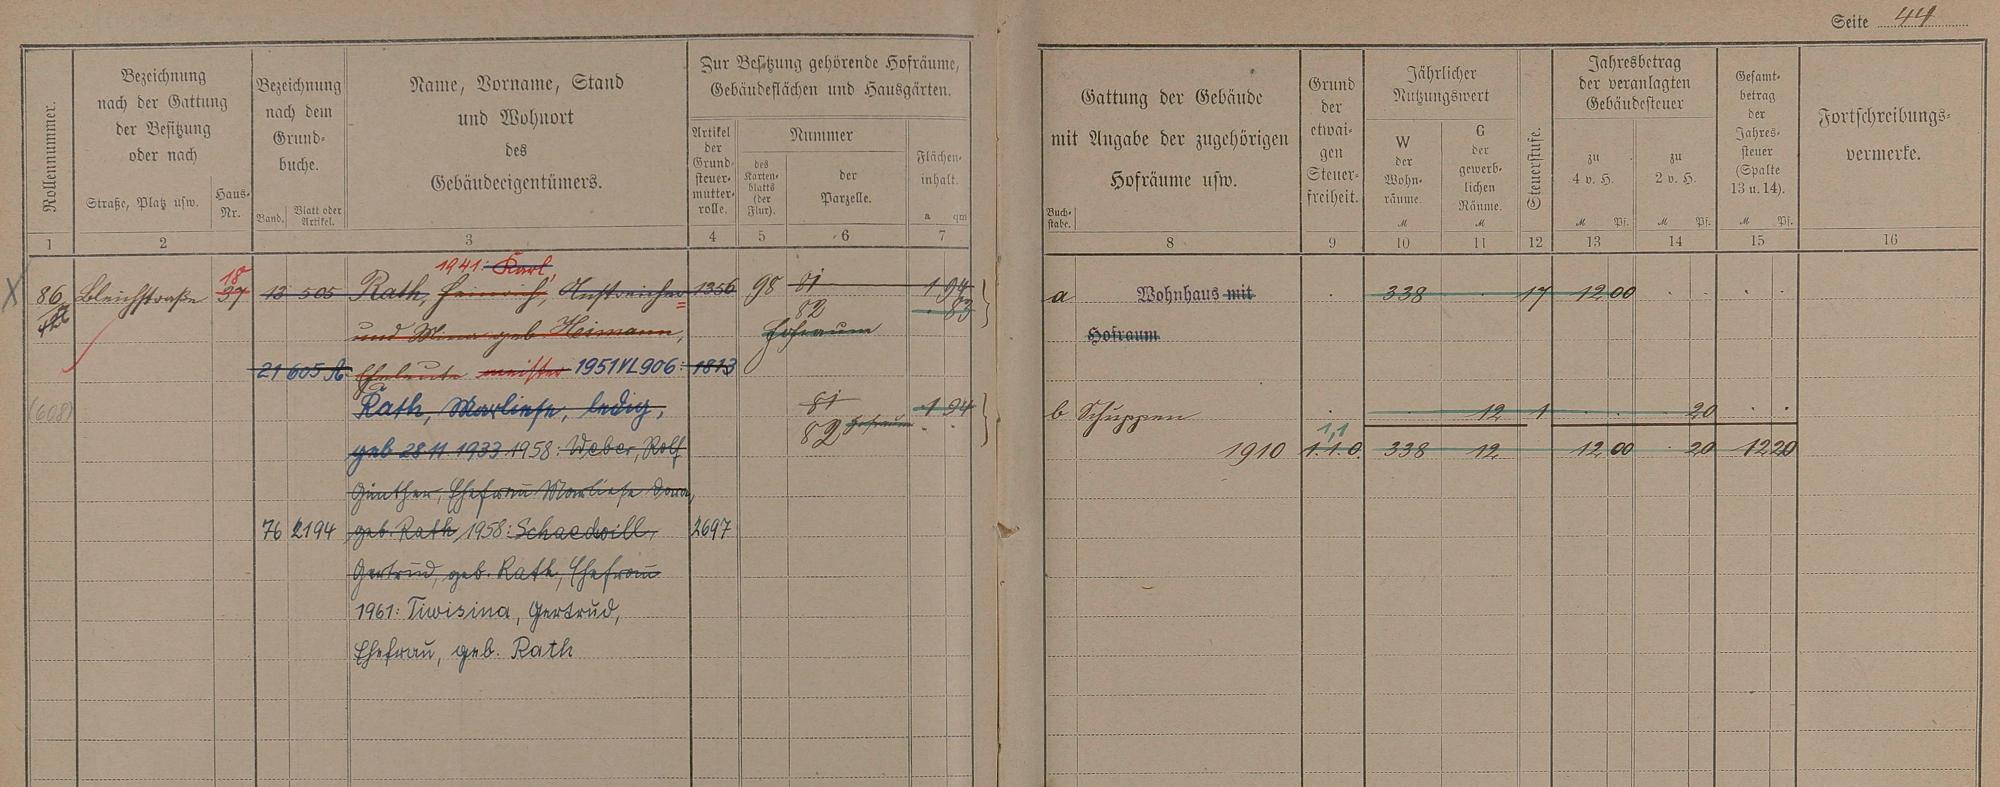 Seite 44
Rollennummer.
Bezeichnung
nach der Gattung
der Besitzung
oder nach
Straße, Platz usw.
Haus-
Nr.
Bezeichnung
nach dem
Grund-
buche.
Band.
Blatt oder
Artikel.
Name, Vorname, Stand
und Wohnort
des
Gebäudeeigentümers.
Zur Besitzung gehörende Hofräume,
Gebäudeflächen und Hausgärten.
Artikel
der
Grund-
steuer-
mutter-
rolle.
Nummer
des
Karten-
blatts
(der
Flur).
der
Parzelle.
Flächen-
inhalt.
a qm
1 2 3 4 5 6 7
Buch-
stabe.
Gattung der Gebäude
mit Angabe der zugehörigen
Hofräume usw.
Grund
der
etwai-
gen
Steuer-
freiheit.
Jährlicher
Nutzungswert
W
der
Wohn-
räume.
M
G
der
gewerb-
lichen
Räume.
M
Steuerstufe.
Jahresbetrag
der veranlagten
Gebäudesteuer
zu
4 v. H.
M Pf.
zu
2 v. H.
M Pf.
Gesamt-
betrag
der
Jahres-
steuer
(Spalte
13 u. 14).
M Pf.
Fortschreibungs-
vermerke.
8 9 10 11 12 13 14 15 16
1941: Karl,
18
86 Bleichstraße 37 13 505 Rath, Heinrich, Anstreicher 1356 98 81 1 94
82 83
und Mina geb. Heimann, Hofraum
21 605 A Eheleute meister 1951 VL 906: 1813
(608) Rath, Marliese, ledig, 81 1 94
82 Hofraum
geb 28.11.1933 1958: Weber, Rolf
Günther, Ehefrau Marliese
76 2194 geb. Rath, 1958: Schaedwill, 2697
Gertrud, geb. Rath, Ehefrau
1961: Tiwisina, Gertrud,
Ehefrau, geb. Rath
a Wohnhaus mit 338 17 12 00
Hofraum
b Schuppen 12 1 20
1,1
1910 1.1.0. 338 12 12 00 20 12 20